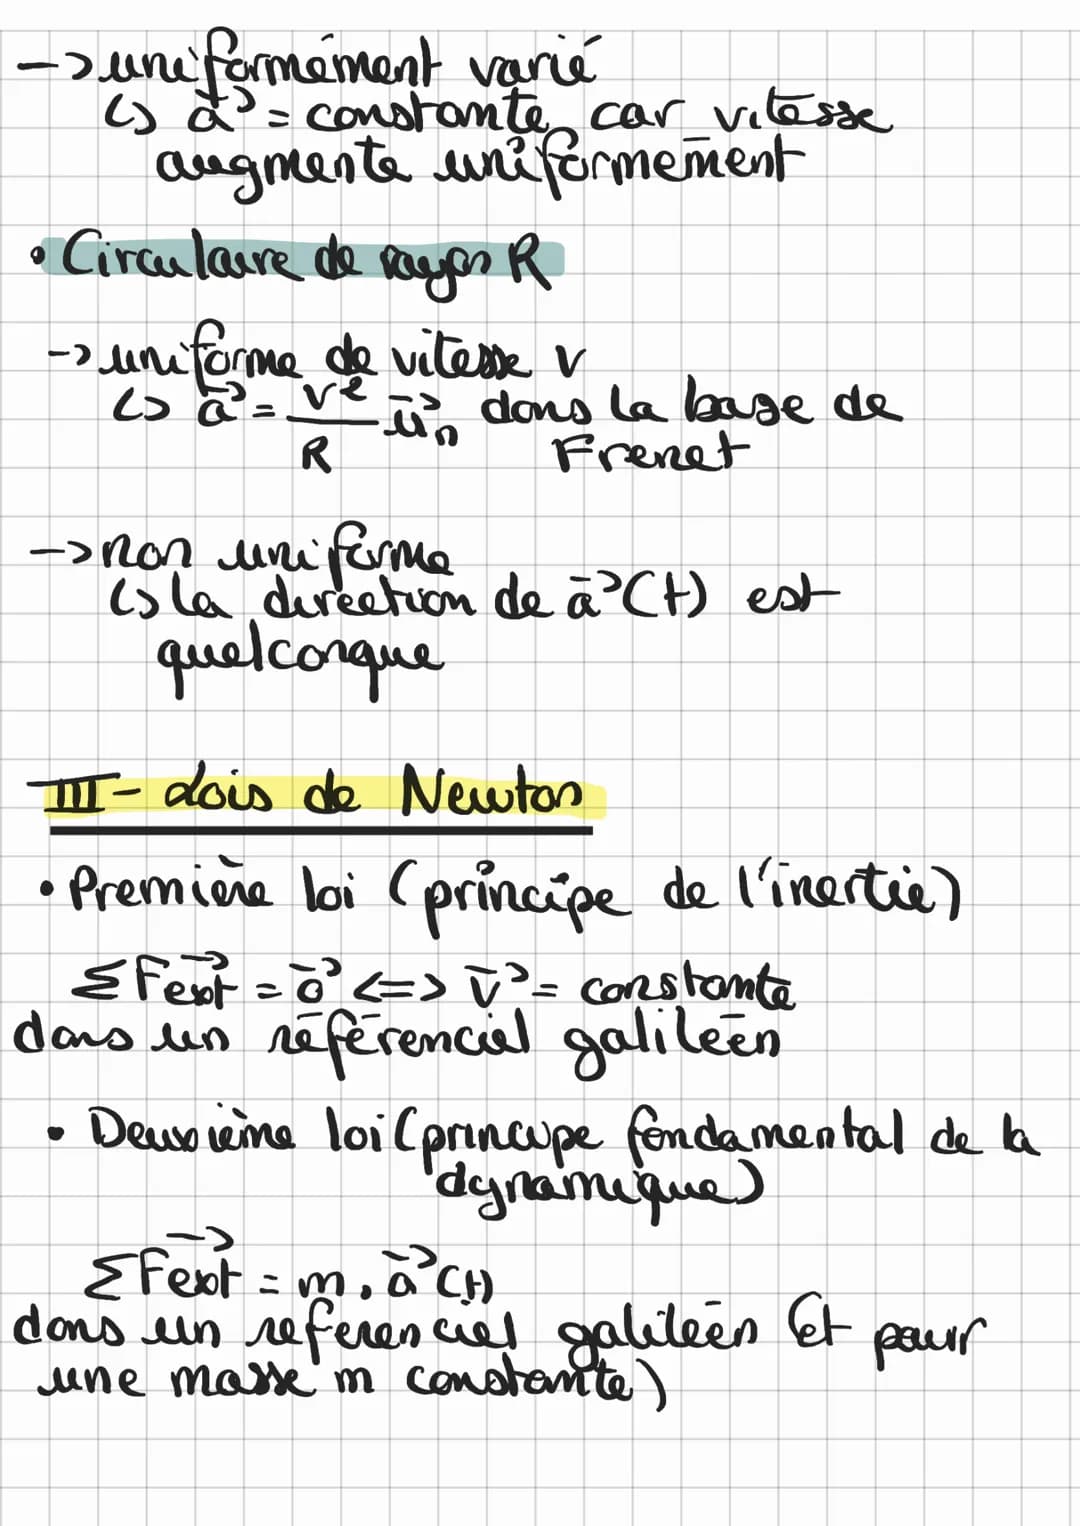 -> uniformément varié
↳ a⃗ = constante car vitesse
augmente uniformement
• Circulaire de rayon R
-> uniforme de vitesse v
↳ a⃗ = v²/R u⃗n dans la base de
Frenet
-> non uniforme
↳ la direction de a⃗(t) est
quelconque
III - Lois de Newton
• Première loi (principe de l'inertie)
ΣF⃗ext = 0⃗ <=> v⃗ = constante
dans un référenciel galiléen
• Deuxième loi (principe fondamental de la
dynamique)
ΣF⃗ext = m . a⃗(t)
dans un referenciel galiléen (et pour
une masse m constante)